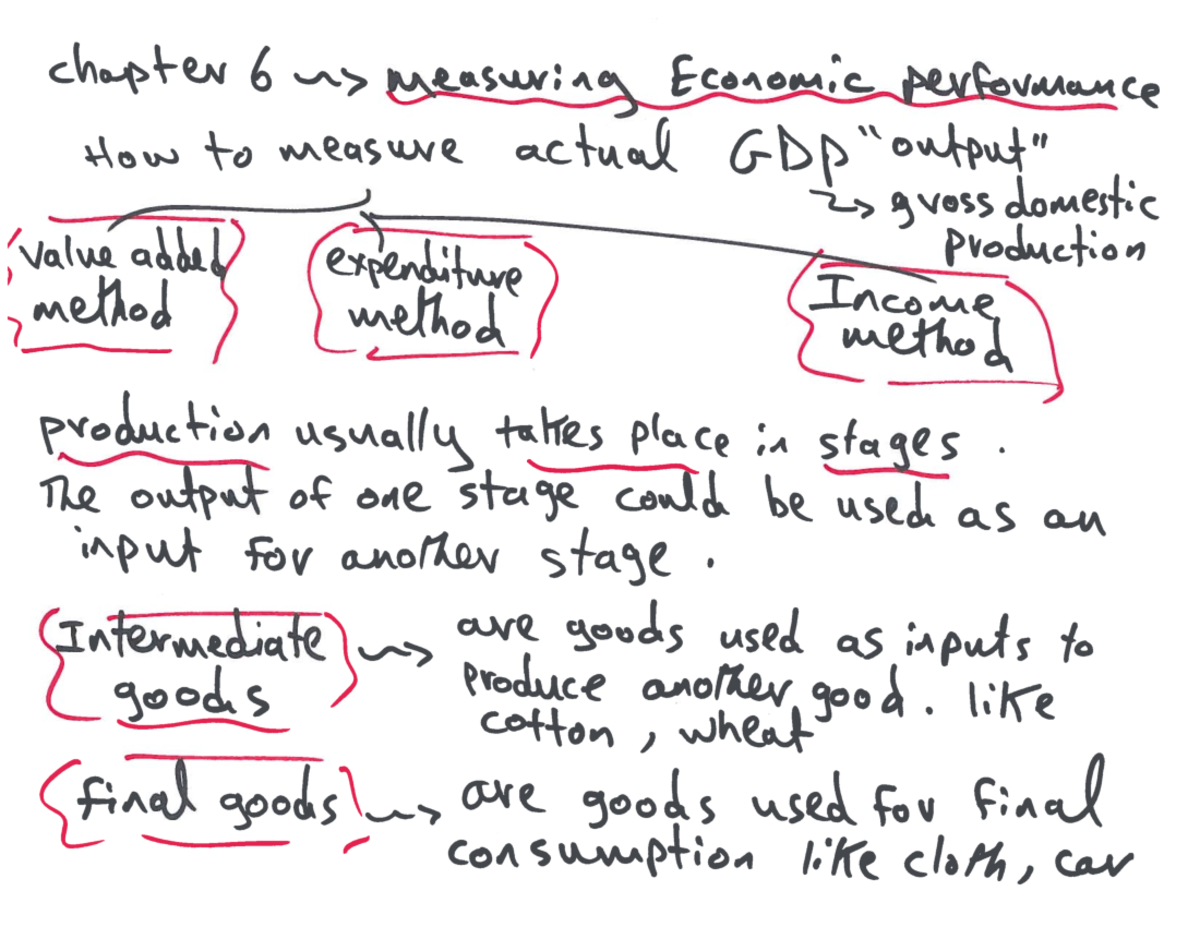 chapter 6 ~> measuring Economic performance
How to measure actual GDP "output"
↳ gross domestic
production
value added
method
expenditure
method
Income
method
production usually takes place in stages.
The output of one stage could be used as an
input for another stage.
Intermediate
goods
~> are goods used as inputs to
produce another good. like
cotton, wheat
final goods ~> are goods used for final
consumption like cloth, car